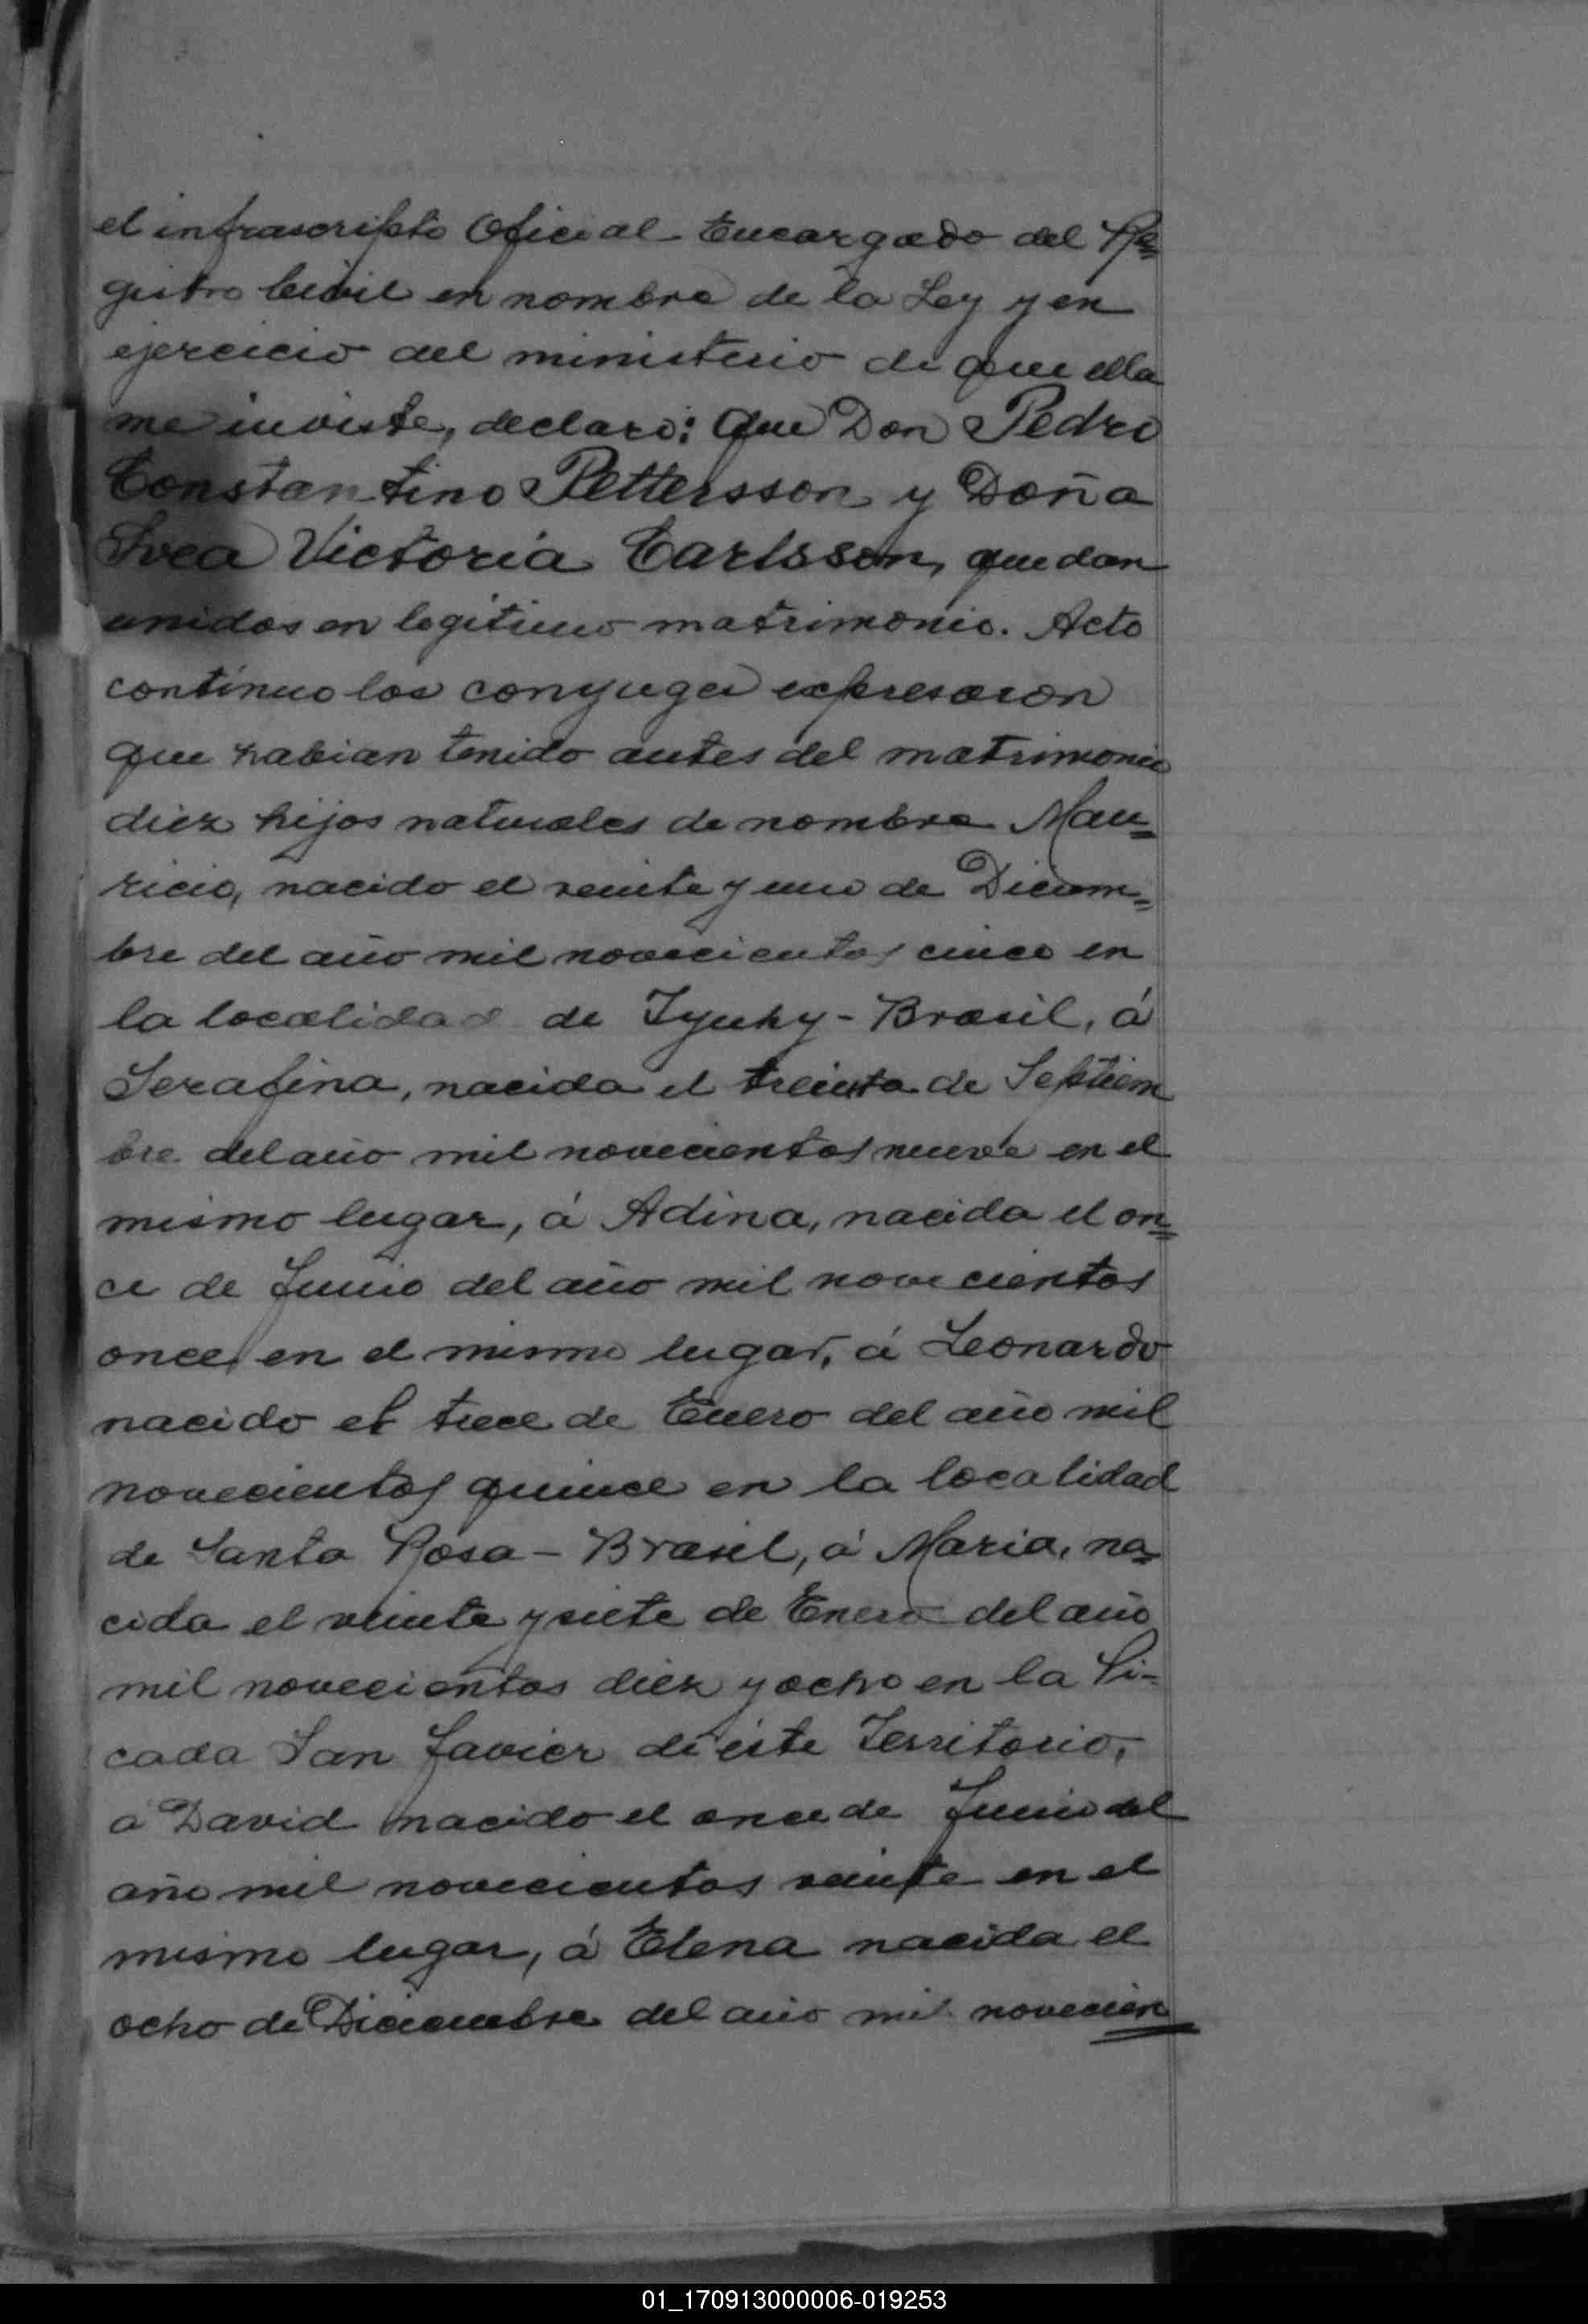 el infrascripto Oficial Encargado del Re=
gistro Civil en nombre de la Ley y en
ejercicio del ministerio de que ella
me inviste, declaro: Que Don Pedro
Constantino Pettersson y Doña
Svea Victoria Carlsson, quedan
unidos en legitimo matrimonio. Acto
contínuo los conyuges expresaron
que habian tenido antes del matrimonio
diez hijos naturales de nombre Mau=
ricio, nacido el veinte y uno de Diciem=
bre del año mil novecientos cinco en
la localidad de Iyuhy - Brasil, á
Serafina, nacida el treinta de Septiem
bre del año mil novecientos nueve en el
mismo lugar, á Adina, nacida el on=
ce de Junio del año mil novecientos
once, en el mismo lugar, á Leonardo
nacido el trece de Enero del año mil
novecientos quince en la localidad
de Santa Rosa - Brasil, á Maria, na=
cida el veinte y siete de Enero del año
mil novecientos diez y ocho en la Pi=
cada San Javier de éste Territorio,
a David nacido el once de Junio del
año mil novecientos veinte en el
mismo lugar, á Elena nacida el
ocho de Diciembre del año mil novecien=
01_170913000006-019253